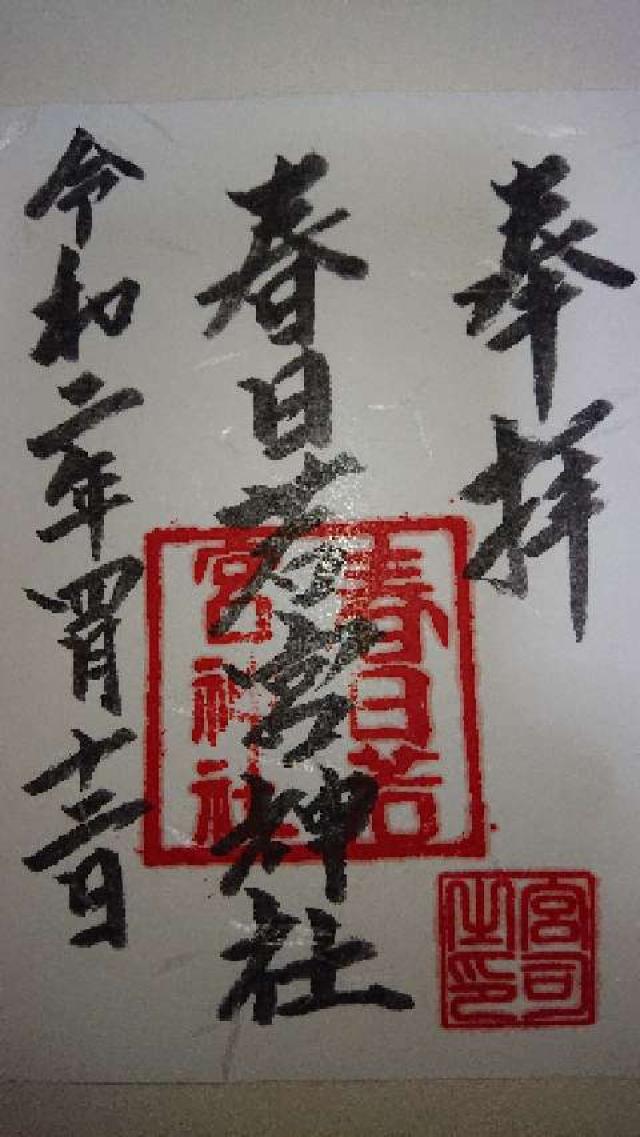 奉拝
春日若宮神社
令和二年四月十二日
春日若
宮神社
宮司
之印